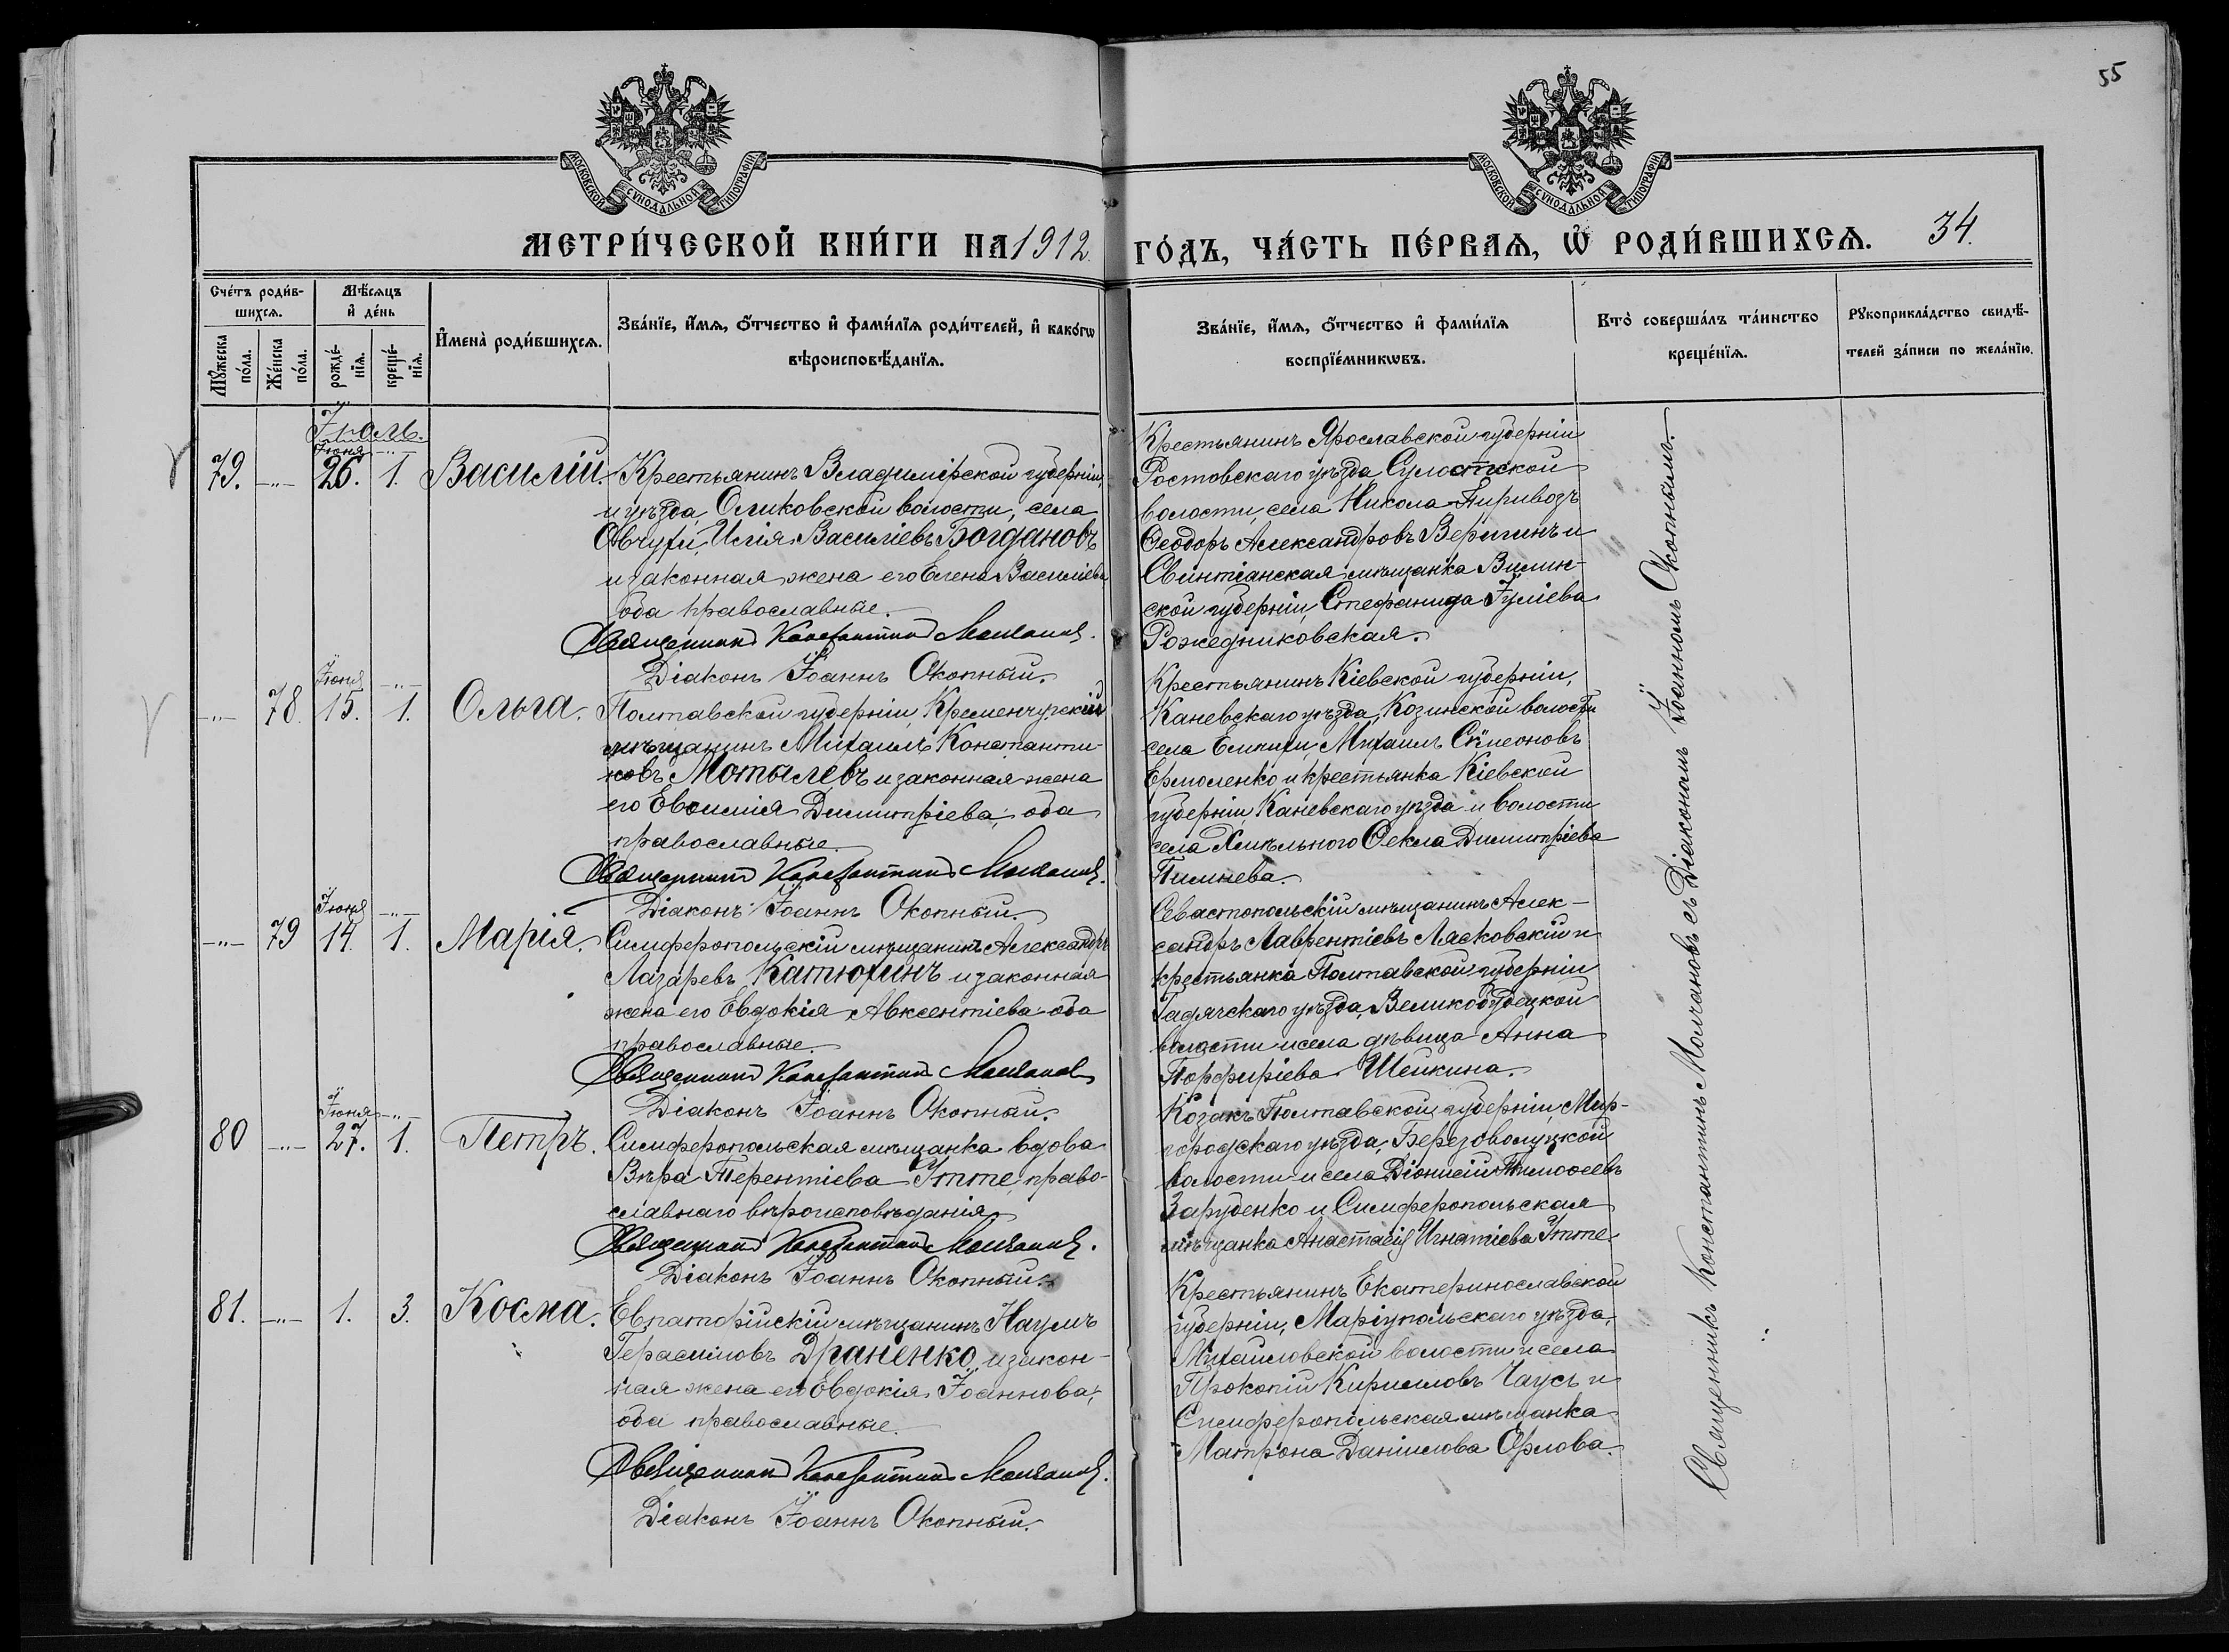 55
МОСКОВСКОЙ СѴНОДАЛЬНОЙ ТИПОГРАФІИ
МОСКОВСКОЙ СѴНОДАЛЬНОЙ ТИПОГРАФІИ
МЕТРИ́ЧЕСКОЙ КНИ́ГИ НА 1912. ГО́ДЪ, ЧА́СТЬ ПЕ́РВАѦ, Ѡ РОДИ́ВШИХСѦ. 34.
Сче́тъ роди́в-
шихсѧ.
Мꙋ́жеска по́ла.
Же́нска по́ла.
Мѣ́сѧцъ
и҆ де́нь
рожде́-
нїѧ.
креще́-
нїѧ.
И҆мена̀ роди́вшихсѧ.
Зва́нїе, и҆́мѧ, ѻ҆́тчество и҆ фами́лїѧ роди́телей, и҆ како́гѡ
вѣроисповѣ́данїѧ.
Зва́нїе, и҆́мѧ, ѻ҆́тчество и҆ фами́лїѧ
воспрїе́мникѡвъ.
Кто̀ соверша́лъ та́инство
креще́нїѧ.
Рꙋкоприкла́дство свидѣ́-
телей за́писи по жела́нїю.
Іюль.
Іюня -„-
79. -„- 26. 1. Василій. Крестьянинъ Владимірской губерніи,
и уѣзда, Оликовской волости, села
Овчухи, Илія Василіевъ Богдановъ
и законная жена его Елена Василіева
оба православные.
Священникъ Константинъ Молчановъ.
Діаконъ Іоаннъ Окопный.
Крестьянинъ Ярославской губерніи
Ростовскаго уѣзда, Сулостской
волости, села Никола-Перивозъ
Ѳеодоръ Александровъ Веригинъ и
Свинтіанская мѣщанка Вилен-
ской губерніи, Стефанида Іуліева
Рожедниковская.
Іюня -„-
-„- 78. 15. 1. Ольга. Полтавской губерніи Кременчугскій
мѣщанинъ Михаилъ Константи-
новъ Мотылевъ и законная жена
его Евѳимія Димитріева, оба
православные.
Священникъ Константинъ Молчановъ.
Діаконъ Іоаннъ Окопный.
Крестьянинъ Кіевской губерніи,
Каневскаго уѣзда, Козинской волости
села Емчихи, Михаилъ Сѵмеоновъ
Ермоленко и крестьянка Кіевской
губерніи, Каневскаго уѣзда и волости
села Хмѣльного Ѳекла Димитріева
Пимнева.
Іюня -„-
-„- 79 14. 1. Марія. Симферопольскій мѣщанинъ Александръ
Лазаревъ Катюхинъ и законная
жена его Евдокія Авксентіева оба
православные.
Священникъ Константинъ Молчановъ
Діаконъ Іоаннъ Окопный.
Севастопольскій мѣщанинъ Алек-
сандръ Лаврентіевъ Лясковскій и
крестьянка Полтавской губерніи
Гадячскаго уѣзда, Великобудецкой
волости и села дѣвица Анна
Порфиріева Шейкина.
Іюня -„-
80 -„- 27. 1. Петръ. Симферопольская мѣщанка вдова
Вѣра Терентіева Утте, право-
славнаго вѣроисповѣданія.
Священникъ Константинъ Молчановъ.
Діаконъ Іоаннъ Окопный.
Козакъ Полтавской губерніи, Мир-
городскаго уѣзда, Березоволуцкой
волости и села Діонисій Тимоѳеевъ
Заруденко и Симферопольская
мѣщанка Анастасія Игнатіева Утте.
81. -„- 1. 3. Косма. Евпаторійскій мѣщанинъ Наумъ
Герасимовъ Драненко и закон-
ная жена его Евдокія Іоаннова,
оба православные.
Священникъ Константинъ Молчановъ.
Діаконъ Іоаннъ Окопный.
Крестьянинъ Екатеринославской
губерніи, Маріупольскаго уѣзда,
Михайловской волости и села
Прокопій Кирилловъ Чаусъ и
Симферопольская мѣщанка
Матрона Даніилова Орлова.
Священникъ Константинъ Молчановъ съ Діакономъ Іоанномъ Окопнымъ.